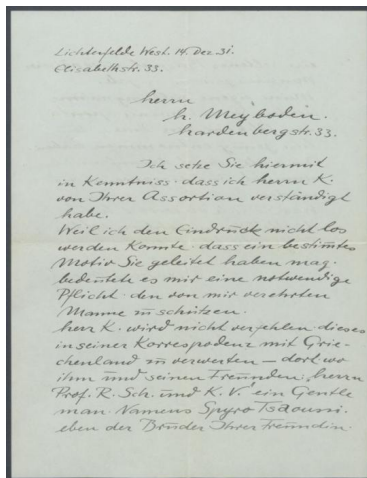 Lichterfelde West. 14. Dez. 31.
Elisabethstr. 33.
Herrn
H. Meyboden.
Hardenbergstr. 33.
Ich setze Sie hiermit
in Kenntniss. dass ich Herrn K.
von Ihrer Assortion verständigt
habe.
Weil ich den Eindruck nicht los
werden konnte. dass ein bestimtes
Motiv Sie geleitet haben mag.
bedeutete es mir eine notwendige
Pflicht. den von mir verehrten
Manne zu schützen.
Herr K. wird nicht verfehlen dieses
in seiner Korrespodenz mit Grie-
chenland zu verwerten — dort wo
ihm und seinen Freunden; Herrn
Prof. R. Sch. und K. V. ein Gentle
man. Namens Spyro Tsaousi.
eben der Bruder Ihrer Freundin.